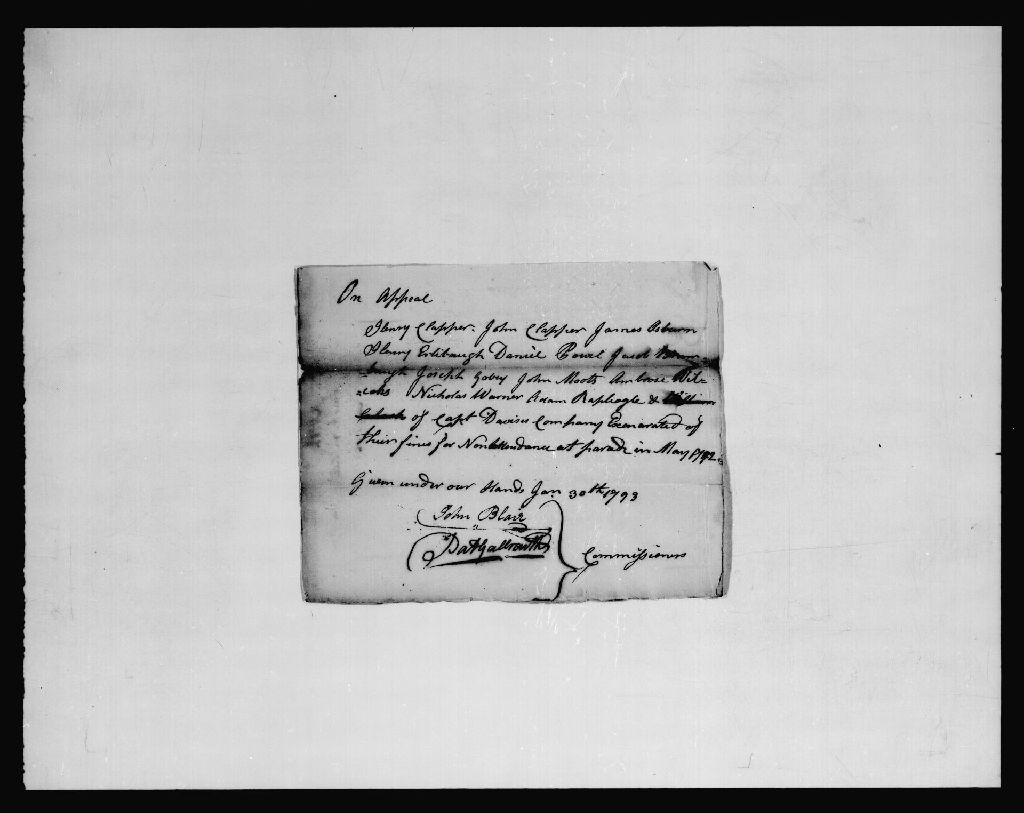 On Appeal
Henry Clapper. John Clapper James Osburn
Henry Erlibaugh Daniel Powel Jacob
Joseph Gobey John Moots Ambrose Wil-
Nicholas Warner Adam Raplogle &
of Capt Davises Company Exenarated off
their fines for Nonattendance at parade in May 1792.
Given under our Hands Jan 30th 1793
John Blair
Commissioners